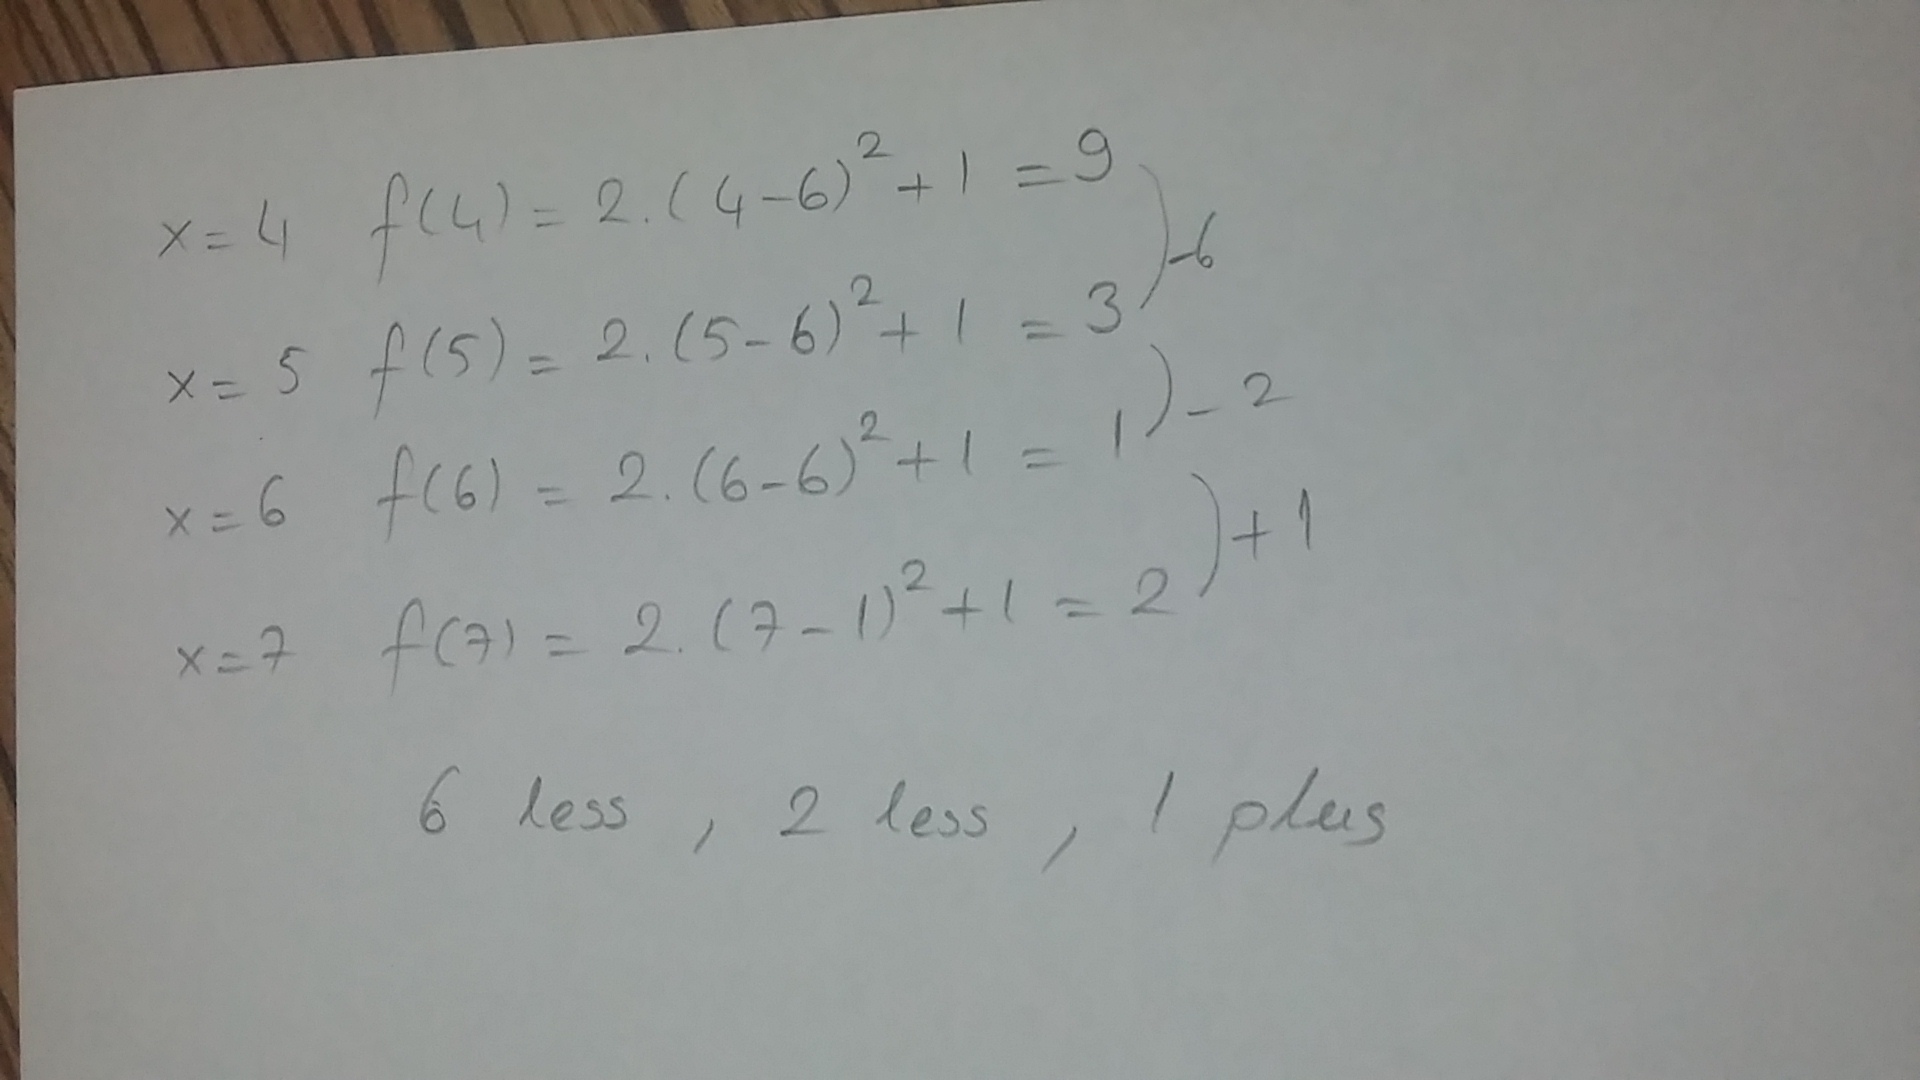 x=4 f(4) = 2.(4-6)² + 1 = 9
)-6
x=5 f(5) = 2.(5-6)² + 1 = 3
)-2
x=6 f(6) = 2.(6-6)² + 1 = 1
)+1
x=7 f(7) = 2.(7-1)² + 1 = 2
6 less , 2 less , 1 plus